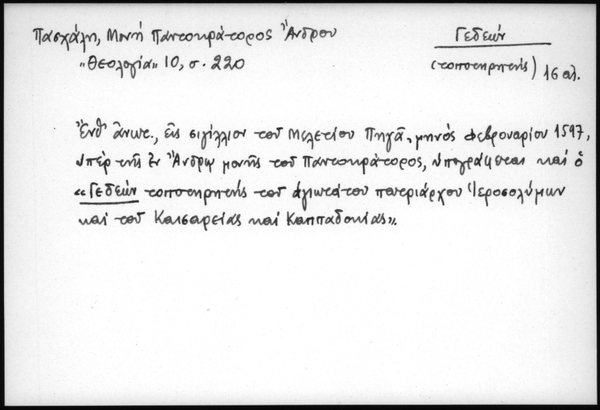 Πασχάλη, Μονή Παντοκράτορος Ἄνδρου
"Θεολογία" 10, σ. 220
Γεδεών
(τοποτηρητής) 16 αἰ.
Ἔνθ' ἄνωτ., εἰς σιγίλλιον τοῦ Μελετίου Πηγᾶ, μηνός Φεβρουαρίου 1597,
ὑπέρ τῆς ἐν Ἄνδρῳ μονῆς τοῦ Παντοκράτορος, ὑπογράφεται καί ὁ
«Γεδεών τοποτηρητής τοῦ ἁγιωτάτου πατριάρχου Ἱεροσολύμων
καί τοῦ Καισαρείας καί Καππαδοκίας».